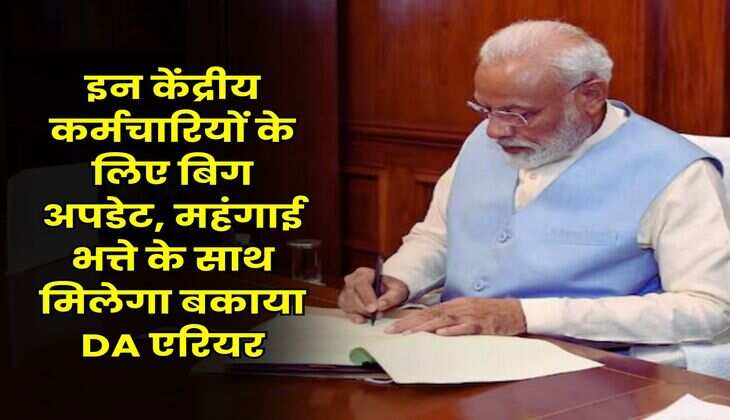 इन केंद्रीय
कर्मचारियों के
लिए बिग
अपडेट, महंगाई
भत्ते के साथ
मिलेगा बकाया
DA एरियर